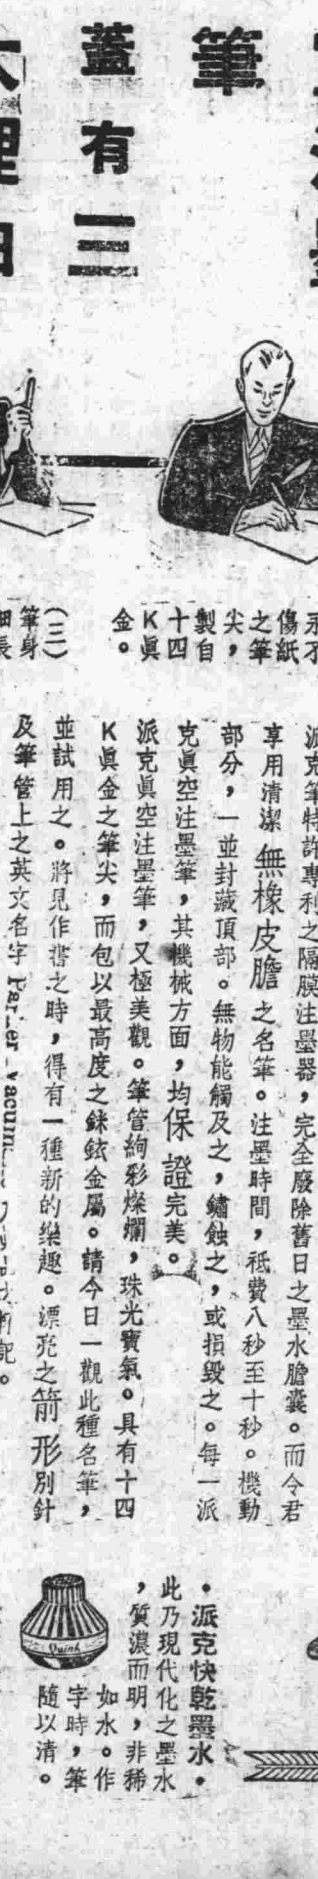 筆
蓋有三
永不
傷紙
之筆
尖，
製自
十四
K眞
金。
（三）
筆身
細長
派克筆特許專利之隔膜注墨器，完全廢除舊日之墨水膽囊。而令君
享用清潔無橡皮膽之名筆。注墨時間，祗費八秒至十秒。機動
部分，一並封藏頂部。無物能觸及之，鏽蝕之，或損毀之。每一派
克眞空注墨筆，其機械方面，均保證完美。
派克眞空注墨筆，又極美觀。筆管絢彩燦爛，珠光寶氣。具有十四
K眞金之筆尖，而包以最高度之銤鉉金屬。請今日一觀此種名筆，
並試用之。將見作書之時，得有一種新的樂趣。漂亮之箭形別針
及筆管上之英文名字
記。
·派克快乾墨水·
此乃現代化之墨水
，質濃而明，非稀
如水。作
字時，筆
隨以清。
Quink